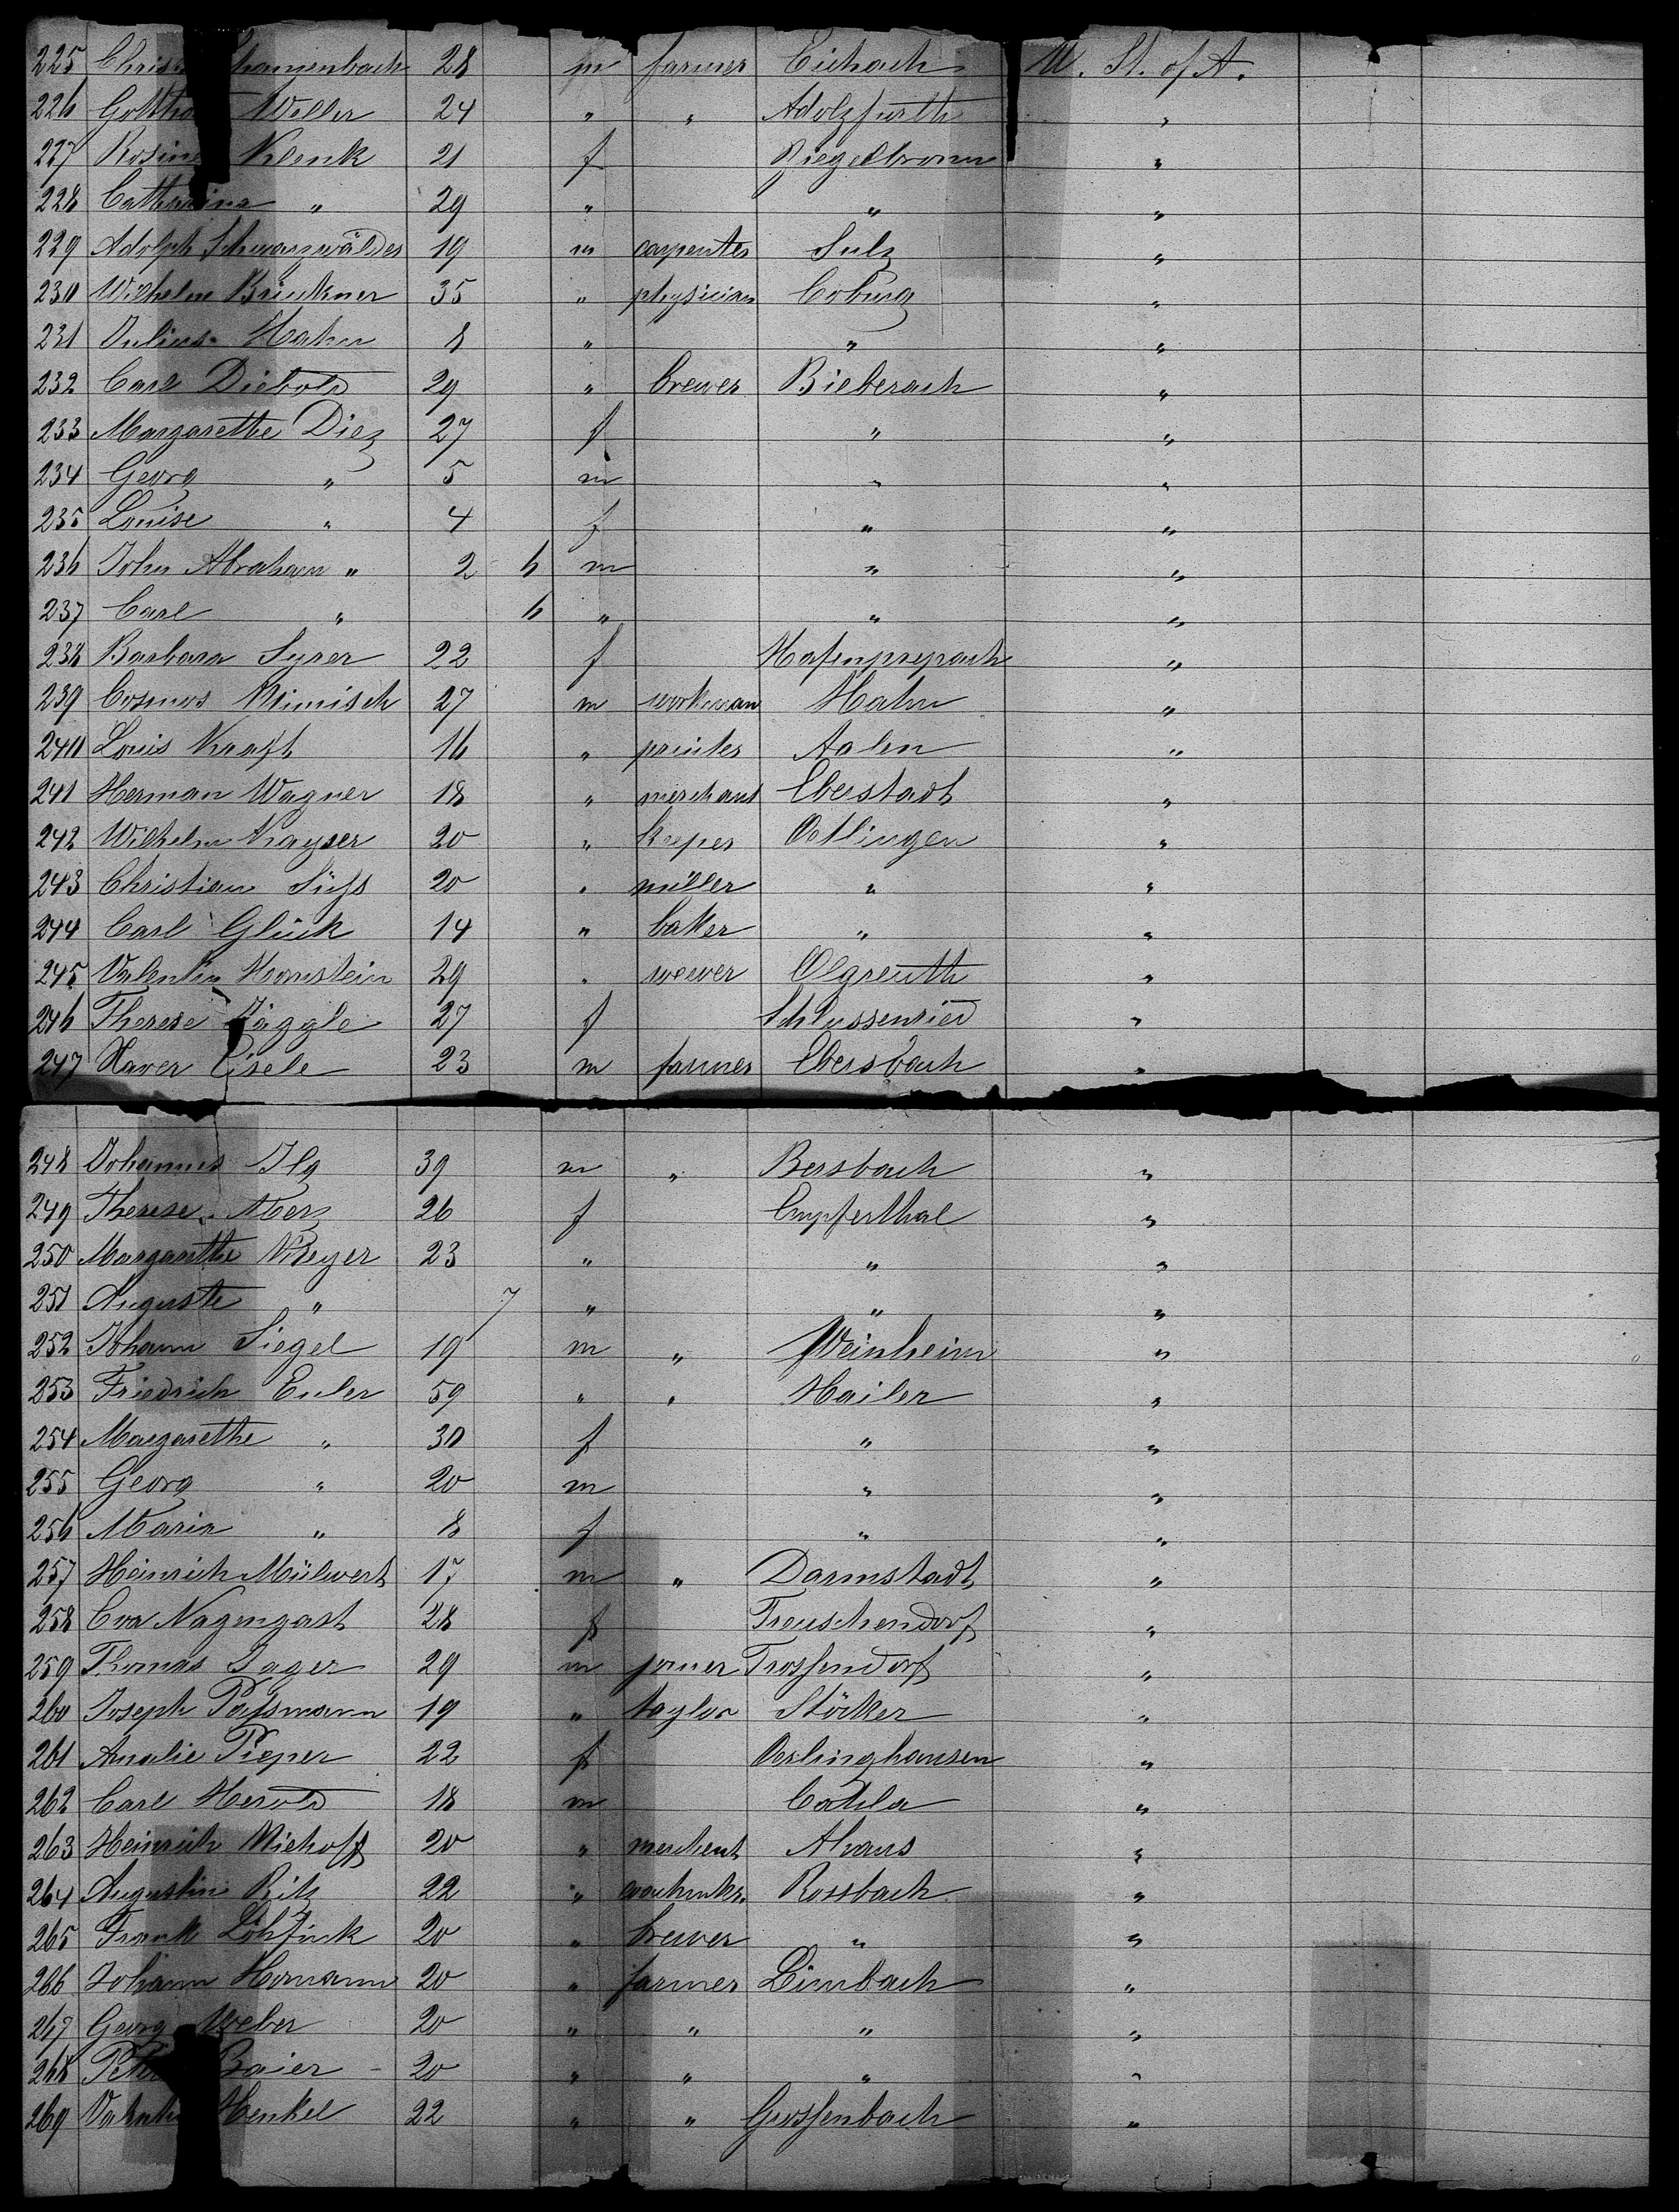 225 Chris hamenbach 28 m farmer Eichach U. St. of A.
226 Gottho Weller 24 " " Adolzfurth "
227 Rosin Klenk 21 f Ziegelbronn "
228 Catharina " 29 " " "
229 Adolph Schwarzwälder 19 m carpenter Sulz "
230 Wilhelm Brückner 35 " physician Coburg "
231 Julius Hahn 8 " " "
232 Carl Diebold 29 " brewer Bieberach "
233 Margarethe Diez 27 f " "
234 Georg " 5 m " "
235 Louise " 4 f " "
236 John Abraham " 2 6 m " "
237 Carl " 6 " " "
238 Barbara Syrer 22 f Hafenpreppach "
239 Cosmos 27 m workman Hahn "
240 Louis Kraft 16 " printer Aalen "
241 Herman Wagner 18 " merchant Eberstadt "
242 Wilhelm Kayser 20 " keeper Oetlingen "
243 Christian Süss 20 " miller " "
244 Carl Glück 14 " baker " "
245 Valentin Hornstein 29 " wewer Olgreuth "
246 Therese Jäggle 27 f Schussenried "
247 Xaver Eisele 23 m farmer Ebersbach "
248 Johannes Ilg 39 m " Bersbach "
249 Therese Merz 26 f Empferthal "
250 Margarethe Meyer 23 " " "
251 Auguste " 7 " " "
252 Johann Siegel 19 m " Weinheim "
253 Friedrich Euler 59 " " Hailer "
254 Margarethe " 30 f " "
255 Georg " 20 m " "
256 Maria " 8 f " "
257 Heinrich Mülwert 17 m " Darmstadt "
258 Eva Nagengast 28 f Treuschendorf "
259 Thomas Jager 29 m joiner Trossendorf "
260 Joseph Passmann 19 " taylor Stöcker "
261 Amalie Pieper 22 f Oerlinghausen "
262 Carl Herold 18 m Cahla "
263 Heinrich Niehoff 20 " merchent Ahaus "
264 Augustin Ritz 22 " Rossbach "
265 Frank Löhfink 20 " brewer " "
266 Johann Hormann 20 " farmer Limbach "
267 Georg Weber 20 " " " "
268 Pet Baier 20 " " " "
269 Henkel 22 " " Gussenbach "